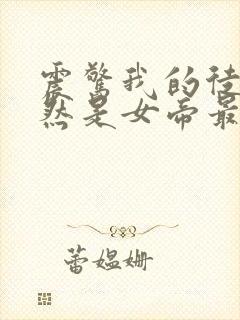 震惊我的徒
然是女帝最
蕾媪姗